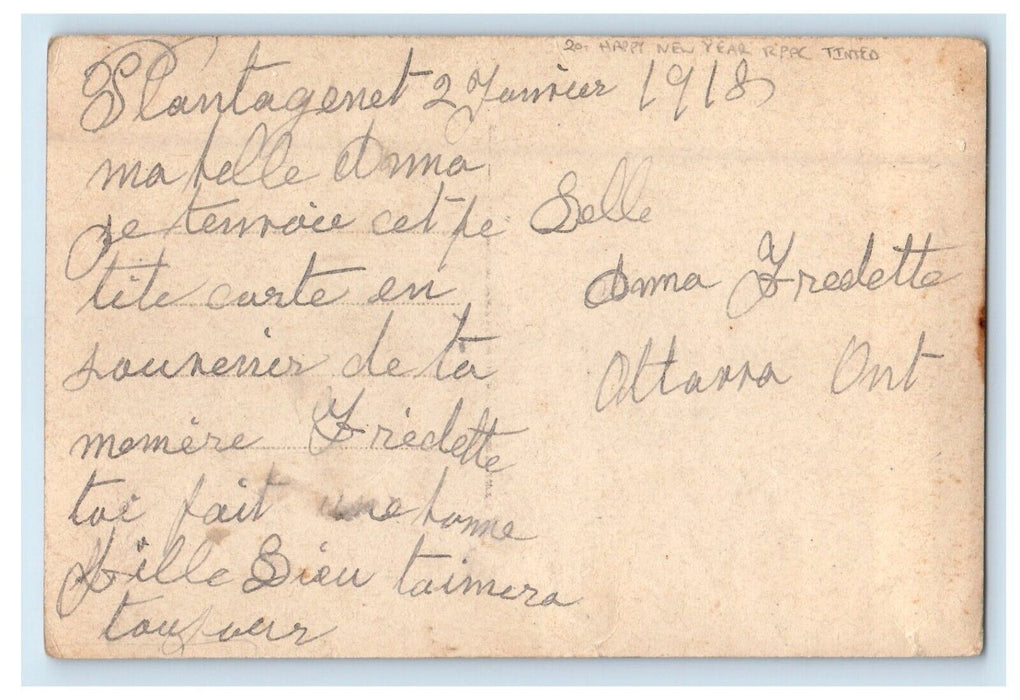 20- HAPPY NEW YEAR RPPC TINTED
Plantagenet 2 Janvier 1918
ma belle Anna
je tenvoie cet pe
tite carte en
souvenir de ta
memére Frédette
toi fait une bonne
fille Dieu taimera
toujour
Belle
Anna Fredette
Ottawa Ont